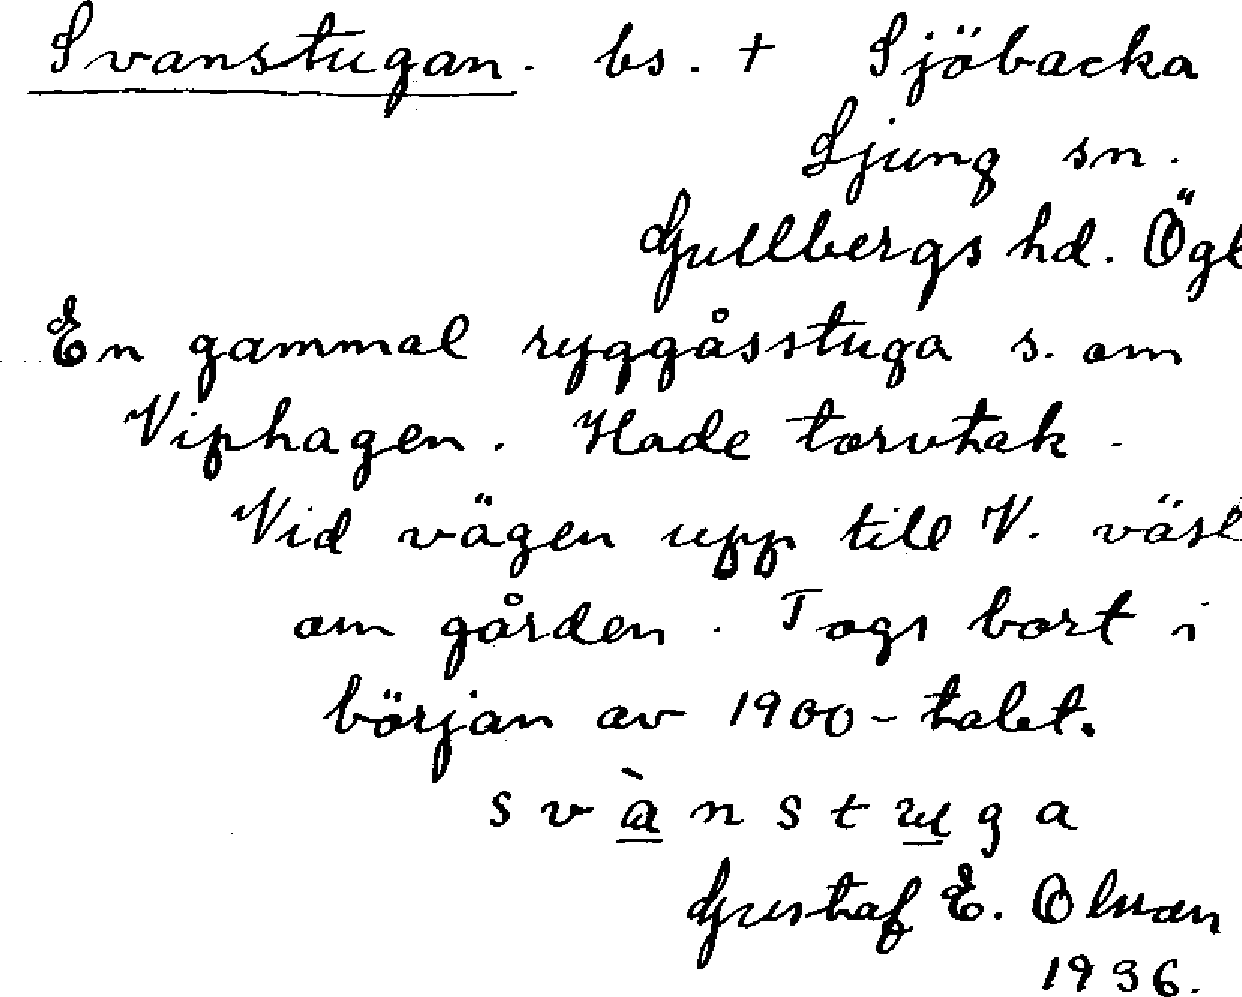 Svanstugan. bs. + Sjöbacka
Ljung sn.
Gullbergs hd. Ögl
En gammal ryggåsstuga s. om
Viphagen. Hade torvtak.
Vid vägen upp till V. väst
om gården. Togs bort i
början av 1900-talet.
svànstuga
Gustaf E. Olman
1936.